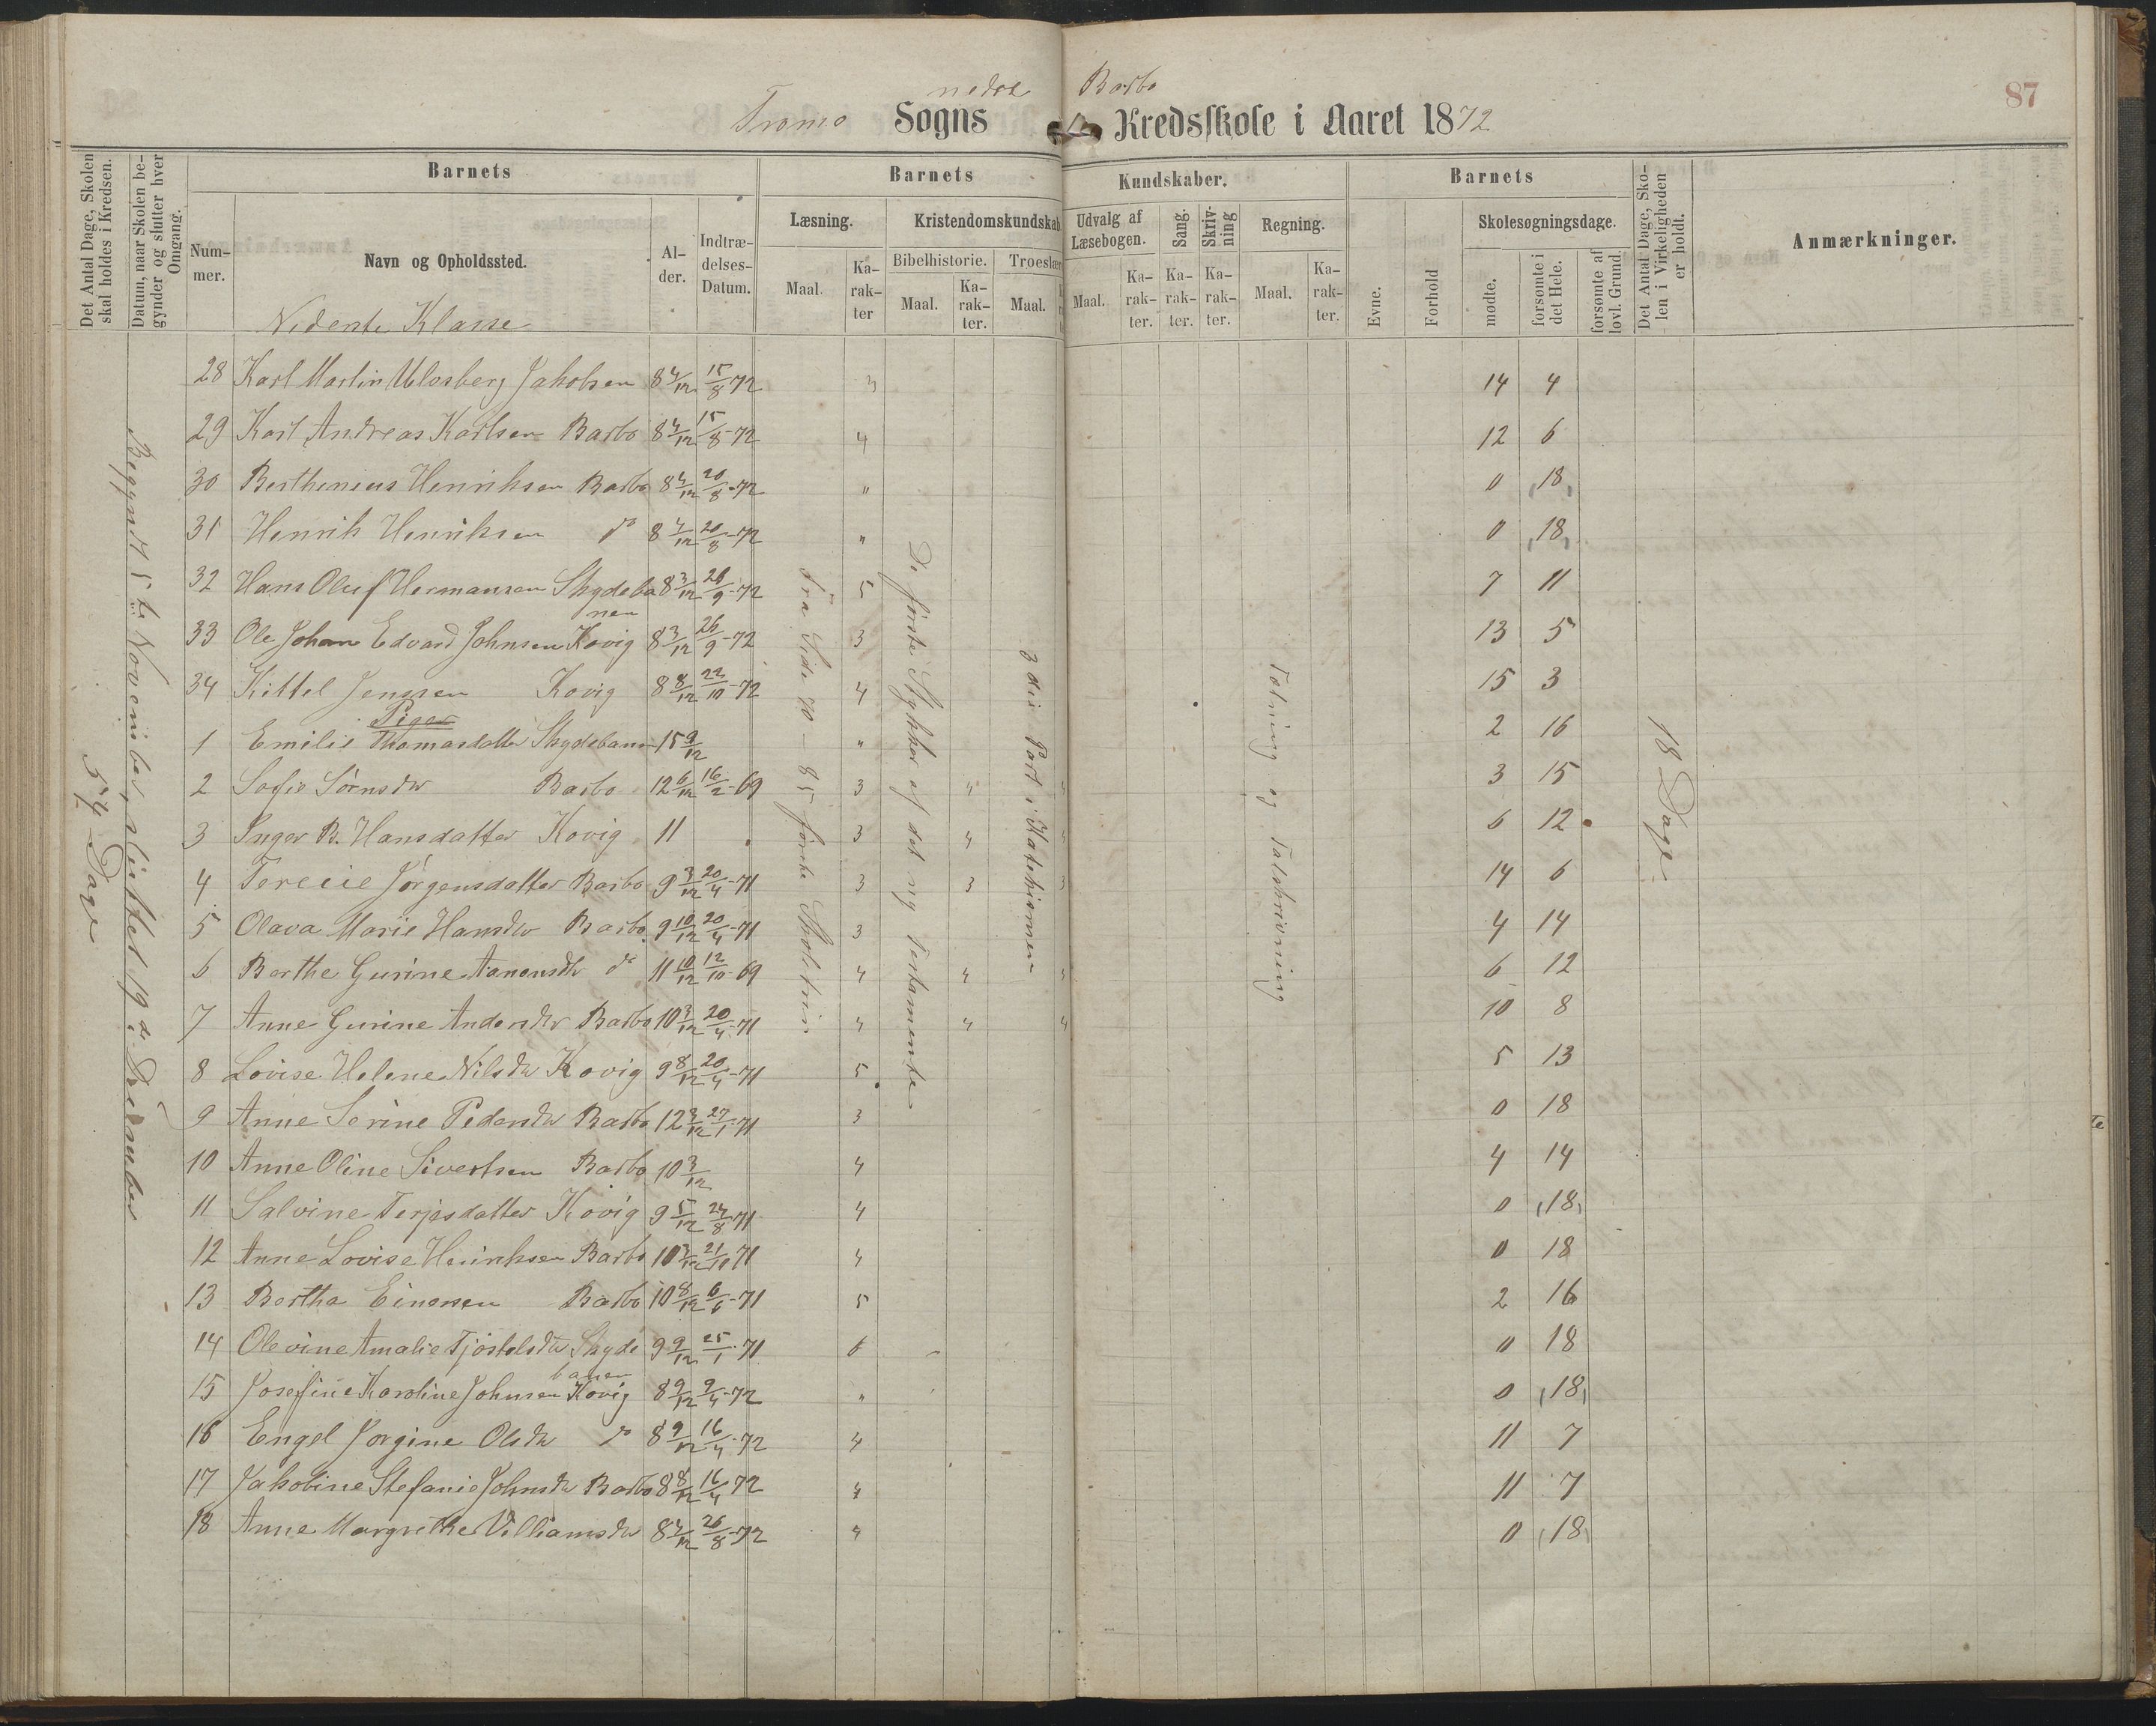 nedre Barbo
87
Tromø Sogns Kredsskole i Aaret 1872
Det Antal Dage, Skolen skal holdes i Kredsen.
Datum, naar Skolen begynder og slutter hver Omgang.
Barnets
Nummer.
Navn og Opholdssted.
Alder.
Indtrædelses-Datum.
Barnets Kundskaber.
Læsning.
Maal. Karakter
Kristendomskundskab
Bibelhistorie.
Maal. Karakter.
Troeslær
Maal.
Udvalg af Læsebogen.
Maal. Karakter.
Sang. Karakter.
Skrivning Karakter.
Regning.
Maal. Karakter.
Barnets
Evne.
Forhold
Skolesøgningsdage.
mødte.
forsømte i det Hele.
forsømte af lovl. Grund.
Det Antal Dage, Skolen i Virkeligheden er holdt.
Anmærkninger.
Nederste Klasse
54 Dage
Begyndt 5te November, sluttet 19de December
Fra Side 70 – 85 første
De første Stykker af det ny Testamente
3die Part i Katekismen
Tælning og Talskrivning
18 Dage
28 Karl Martin Jakobsen 8 4/12 15/8-72 3 14 4
29 Karl Andreas Karlsen Barbo 8 4/12 15/8-72 4 12 6
30 Berthinius Henriksen Barbo 8 4/12 20/8-72 " 0 18
31 Henrik Henriksen do 8 4/12 20/8-72 " 0 18
32 Hans Oluf Hermansen Skydebanen 8 3/12 26/9-72 5 7 11
33 Ole Johan Edvard Johnsen Kovig 8 3/12 26/9-72 3 13 5
34 Kittel Jenssen Kovig 8 8/12 22/10-72 4 15 3
Piger
1 Emilie Thomasdatter Skydebanen 15 9/12 " 2 16
2 Sofie Sørnsdtr Barbo 12 6/12 16/2-69 3 4 3 15
3 Inger B. Hansdatter Kovig 11 3 4 6 12
4 Terecie Jørgensdatter Barbo 9 3/12 20/4-71 3 3 3 14 6
5 Olava Marie Hansdtr Barbo 9 10/12 20/4-71 3 4 14
6 Berthe Gurine Aanonsdtr do 11 10/12 12/10-69 4 4 6 12
7 Anne Gurine Andersdtr Barbo 10 3/12 20/4-71 4 4 4 10 8
8 Lovise Helene Nilsdtr Kovig 9 8/12 20/4-71 5 5 13
9 Anne Serine Pedersdtr Barbo 12 3/12 27/1-71 3 0 18
10 Anne Oline Sivertsen Barbo 10 3/12 4 4 14
11 Salvine Terjesdatter Kovig 9 5/12 24/8 71 4 0 18
12 Anne Lovise Henriksen Barbo 10 3/12 21/10 71 4 0 18
13 Bertha Einersen Barbo 10 8/12 6/6-71 5 2 16
14 Olevine Amalie Tjøstelsdtr Skydebanen 9 9/12 25/1-71 6 0 18
15 Josefine Karoline Johnsen Kovig 8 9/12 9/4-72 " 0 18
16 Engel Jorgine Olsdtr do 8 9/12 16/4-72 4 11 7
17 Jakobine Stefanie Johnsdtr Barbo 8 8/12 16/4 72 4 11 7
18 Anne Margrethe Villiamsdtr 8 4/12 26/8-72 4 0 18